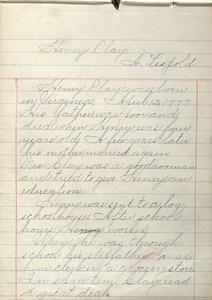 Henry Clay
A. Leopold
Henry Clay was born
in Virginia, April 12, 1777
His father was poor and
died when Henry was four
years old. A few years later
his mother married again
Mrs. Clay was a good woman
and tried to give Henry an
education.
Henry was sent to a log
schoolhouse. After school
hours Henry worked.
When he was through
school his stepfather made
him clerk in a grocery store
In spare time Clay read
a great deal